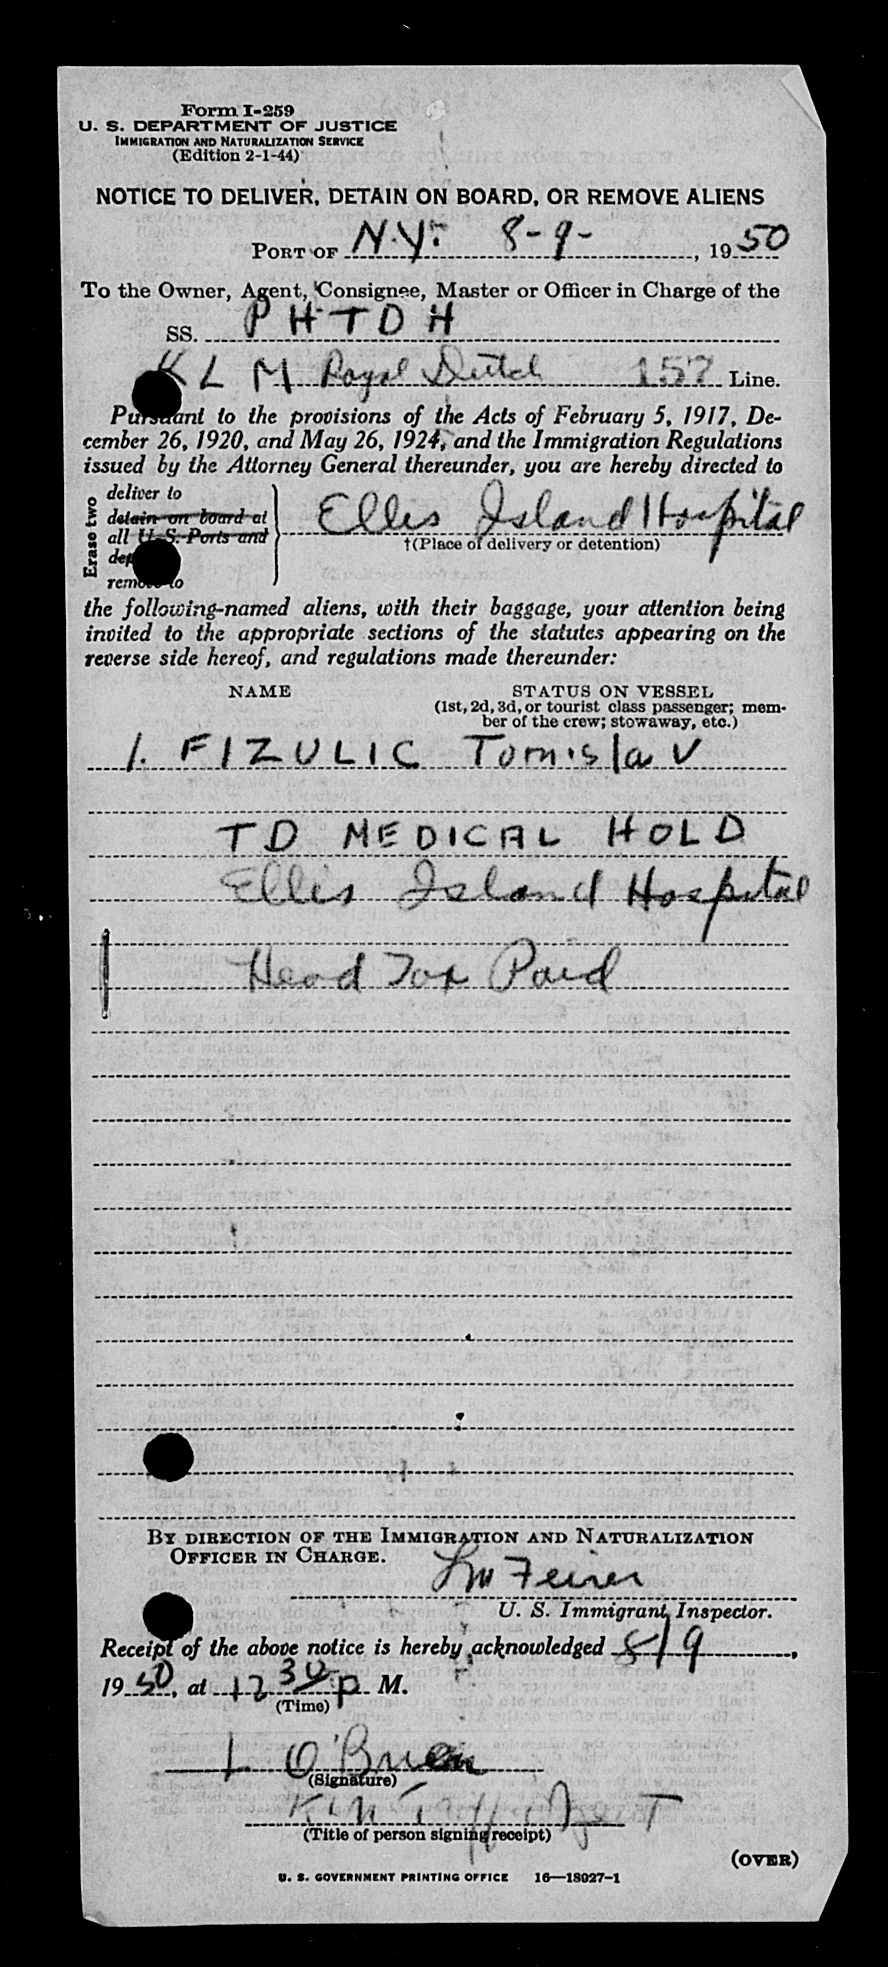 Form I-259
U. S. DEPARTMENT OF JUSTICE
IMMIGRATION AND NATURALIZATION SERVICE
(Edition 2-1-44)
NOTICE TO DELIVER, DETAIN ON BOARD, OR REMOVE ALIENS
PORT OF N.Y. 8-9-, 1950
To the Owner, Agent, Consignee, Master or Officer in Charge of the
SS. PHTDH
KLM Royal Dutch 157 Line.
Pursuant to the provisions of the Acts of February 5, 1917, De-
cember 26, 1920, and May 26, 1924, and the Immigration Regulations
issued by the Attorney General thereunder, you are hereby directed to
Erase two
deliver to
detain on board at
all U. S. Ports and
remove to
Ellis Island Hospital
†(Place of delivery or detention)
the following-named aliens, with their baggage, your attention being
invited to the appropriate sections of the statutes appearing on the
reverse side hereof, and regulations made thereunder:
NAME STATUS ON VESSEL
(1st, 2d, 3d, or tourist class passenger; mem-
ber of the crew; stowaway, etc.)
1. FIZULIC Tomislav
TD MEDICAL HOLD
Ellis Island Hospital
Head Tax Paid
BY DIRECTION OF THE IMMIGRATION AND NATURALIZATION
OFFICER IN CHARGE.
U. S. Immigrant Inspector.
Receipt of the above notice is hereby acknowledged 8/9,
1950, at 12 30 P M.
(Time)
L O'Brien
(Signature)
Agent
(Title of person signing receipt)
(OVER)
U. S. GOVERNMENT PRINTING OFFICE 16—18027-1